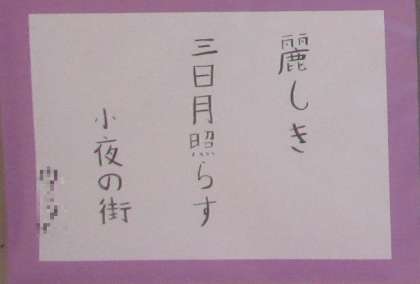 麗しき
三日月照らす
小夜の街